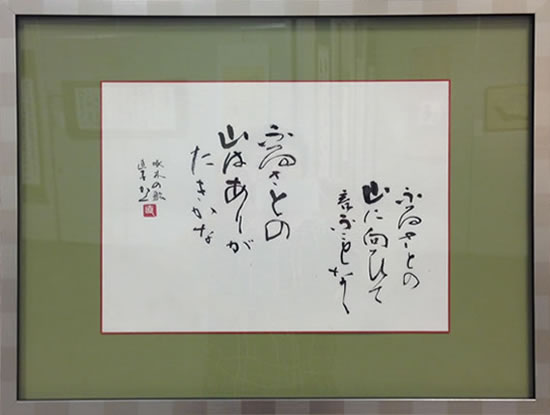 ふるさとの
山に向ひて
言ふことなし
ふるさとの
山はありが
たきかな
啄木の歌
かく